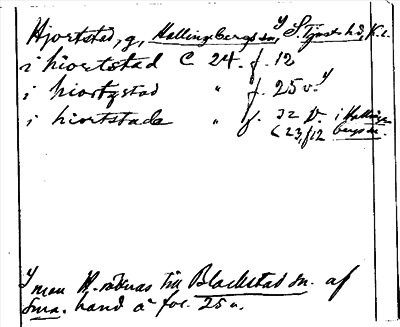 Hjortstad, g, Hallingebergs sn, y S. Tjust hd, K. l.
i hiortstad C 24. f. 12
i hiortzstad " f. 25 v. y
i hiortstade " f. 32 v. i Hallinge
C 23, f 12 bergs sn.
y men H. räknas till Blackstad sn. af
sma. hand å fol. 25 v.